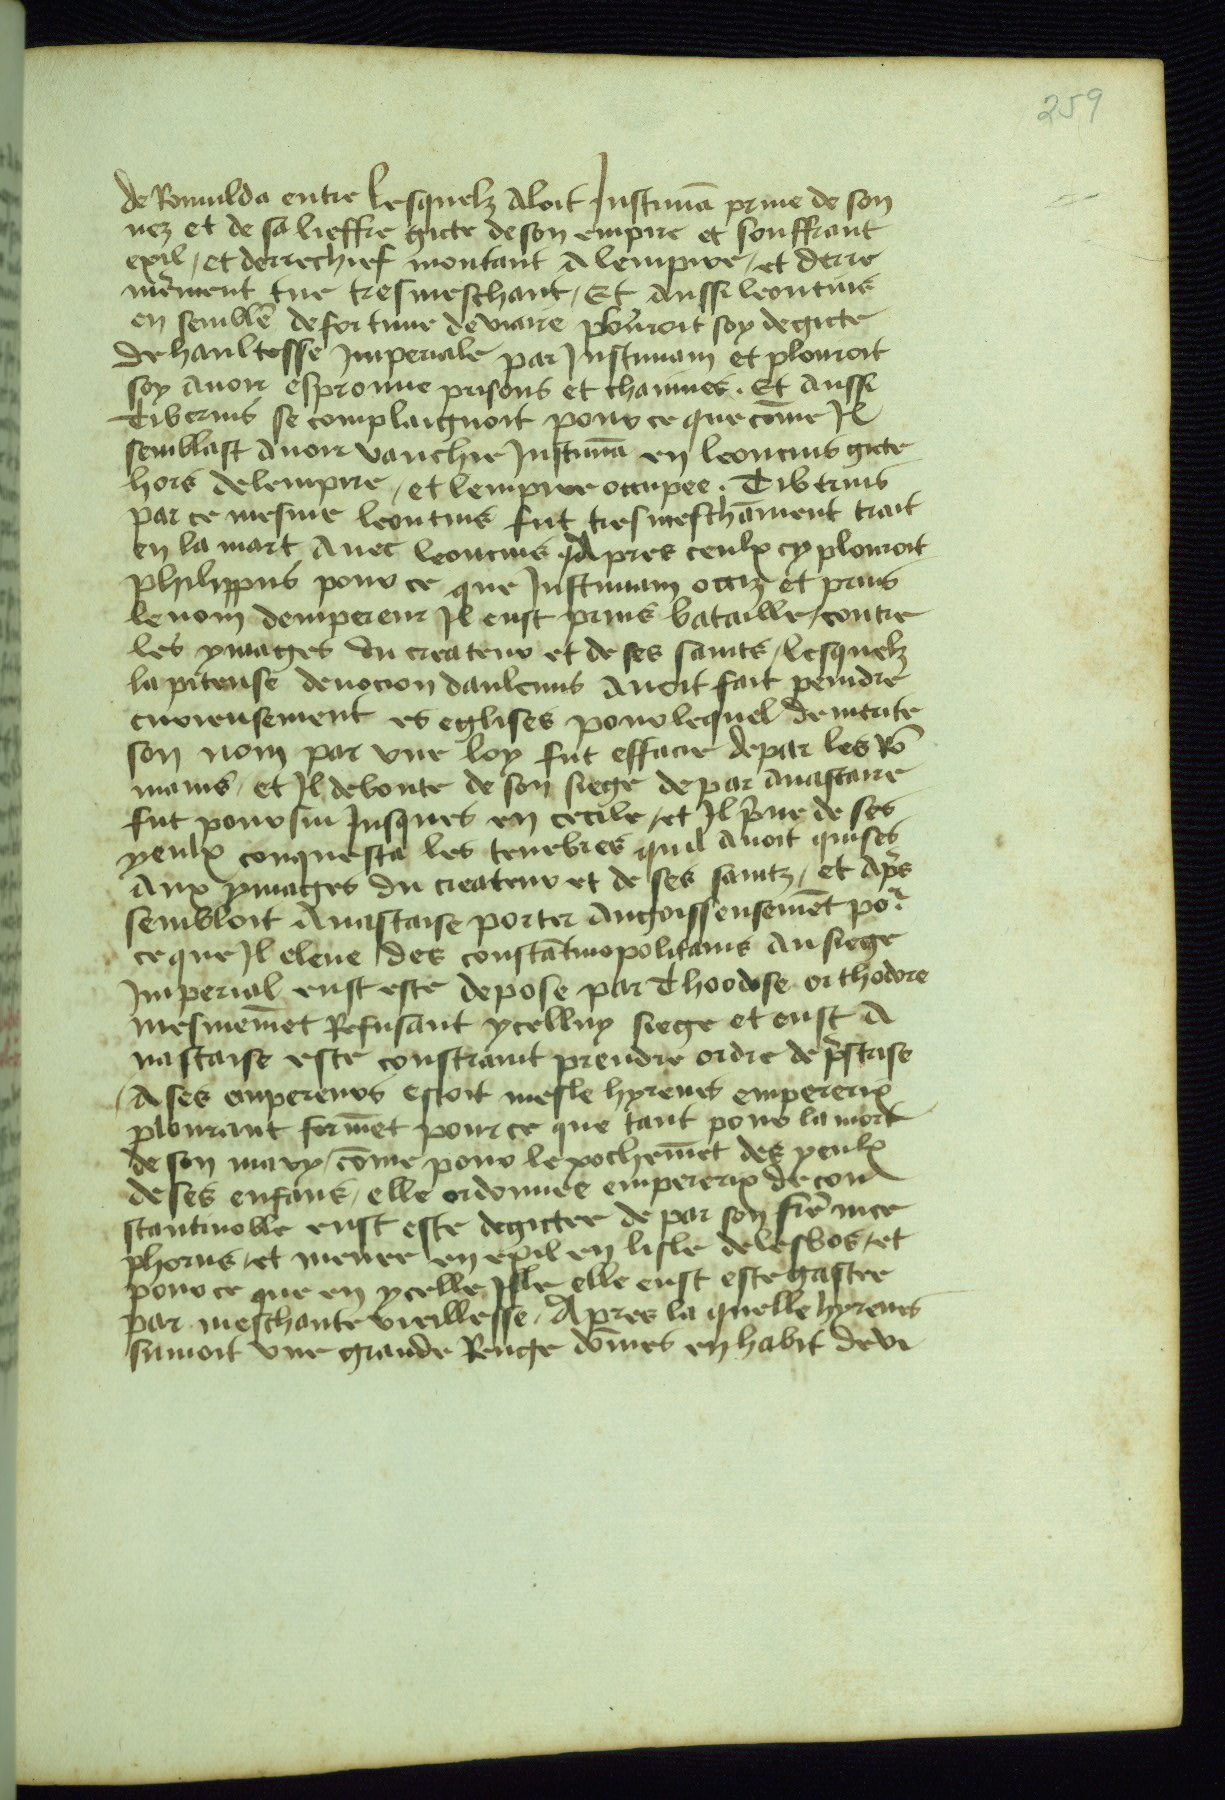 259
de Romulda entre Lesquelz Aloit Justinia͂ priue de son
nez et de sa lieffre gicte de son empire et souffrant
exil / et derrechief montant A lempire / et derre
nierement tue tresmeschant / Et Aussi leoncius
en semble de fortune deuaire plouroit soy degicte
de haultesse Imperiale par Justiniam et plouroit
soy Auoir esprouue prisons et chainnes. Et Aussi
Tiberius se complaignoit pour ce que co͂me Il
semblast Auoir vanchie Justinia͂ en leoncius gicte
hors delempire / et lempire occupee. Tiberius
par ce mesme leoncius fut tresmescha͂ment trait
en la mort Auec leoncius. Apres ceulx cy plouroit
philippus pour ce que Justiniam occiz et prins
le nom dempereur Il eust prins bataille / contre
les ymages du createur et de ses saints / lesquelz
la piteuse deuocion daulcuns Auoit fait peindre
curieusement es eglises pour lequel demerite
son nom par vne loy fut effacie depar les Ro͂
mains / et Il deboute de son siege de par Anastaise
fut poursui Jusques en cecile / et Il p͂ue de ses
yeulx conquesta les tenebres quil Auoit quises
Aux ymages du createur et de ses saintz / et Ap͂s
sembloit Anastaise porter Angoisseuseme͂t po͂r
ce que Il eleue des consta͂tinopolitains Au siege
Imperial eust este depose par Thoodose orthodoxe
mesmeme͂t Refusant ycelluy siege et eust A
nastaise este constraint prendre ordre de p͂strise
A ses empereurs estoit mesle hyrenes empererix
plourant forme͂t pour ce que tant pour la mort
de son mary / co͂me pour le pocheme͂t des yeulx
de ses enfans / elle ordonnee empererix de con
stantinoble eust este degictee de par son fre͂ nice
phorus / et menee en exil en lisle delesbos / et
pour ce que en ycelle Jsle elle eust este gastee
par meschante vieillesse. Apres la quelle hyrenes
suiuoit vne grande Renge do͂mes en habit devi